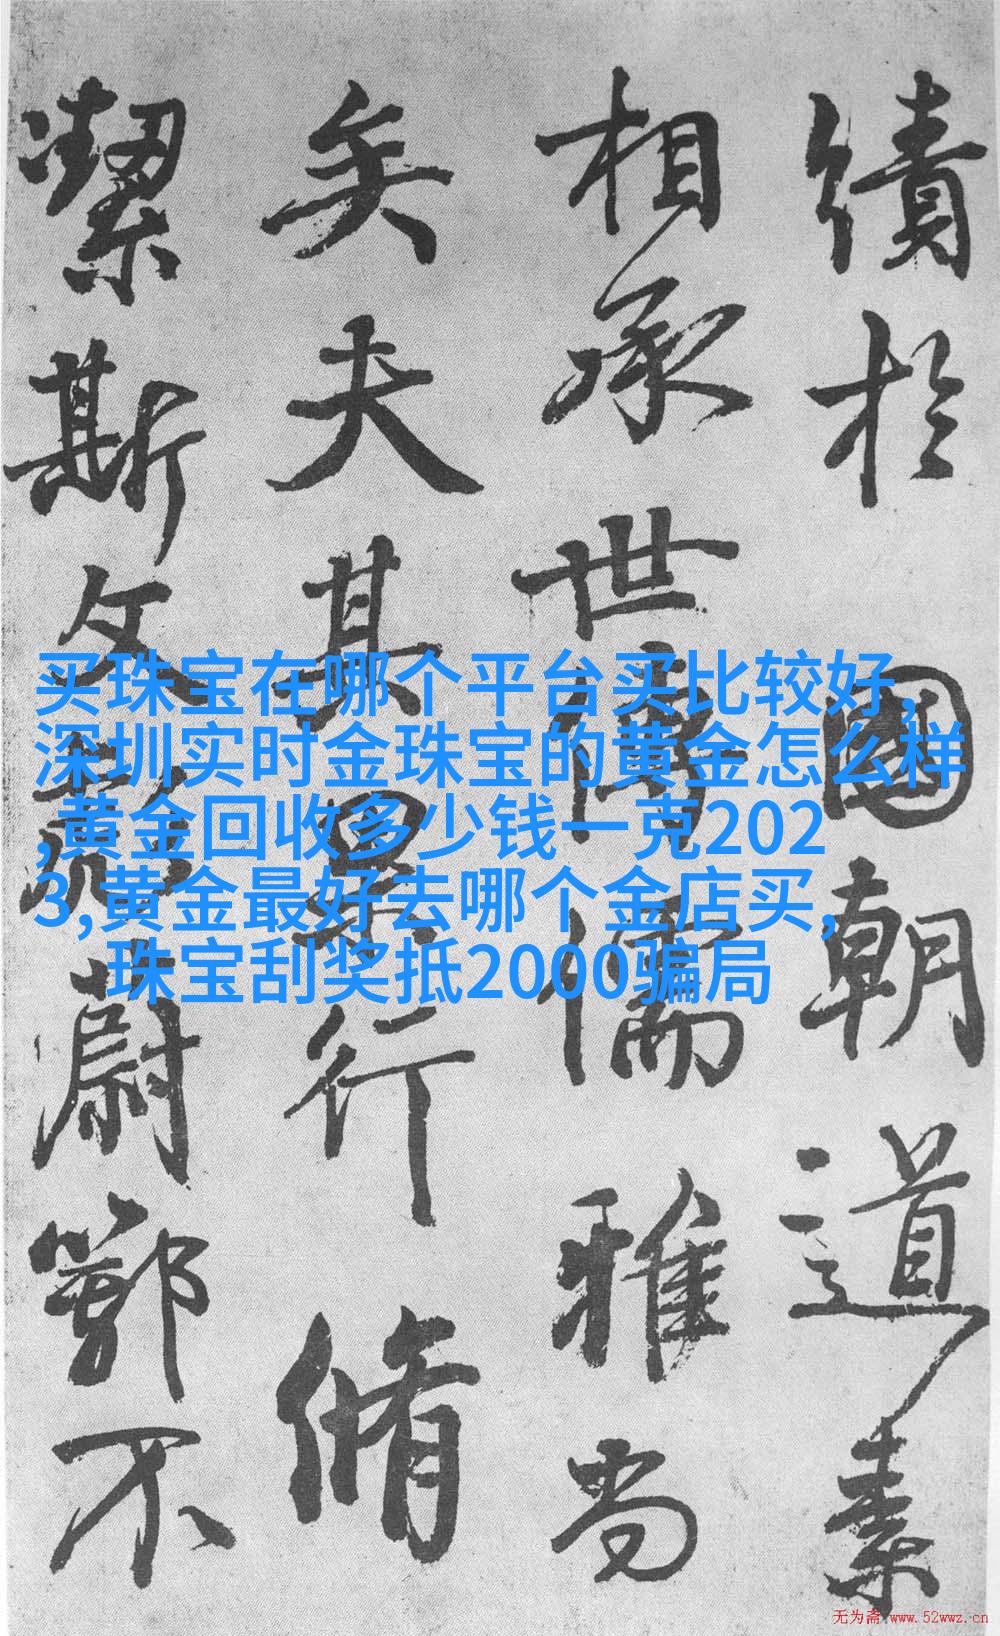 績於國朝道素
相承世傳儒雅尚
矣夫其果行脩
潔斯文彪蔚鄂不
买珠宝在哪个平台买比较好,
深圳实时金珠宝的黄金怎么样
,黄金回收多少钱一克202
3,黄金最好去哪个金店买,
珠宝刮奖抵2000骗局
无为斋 www.52wwz.cn